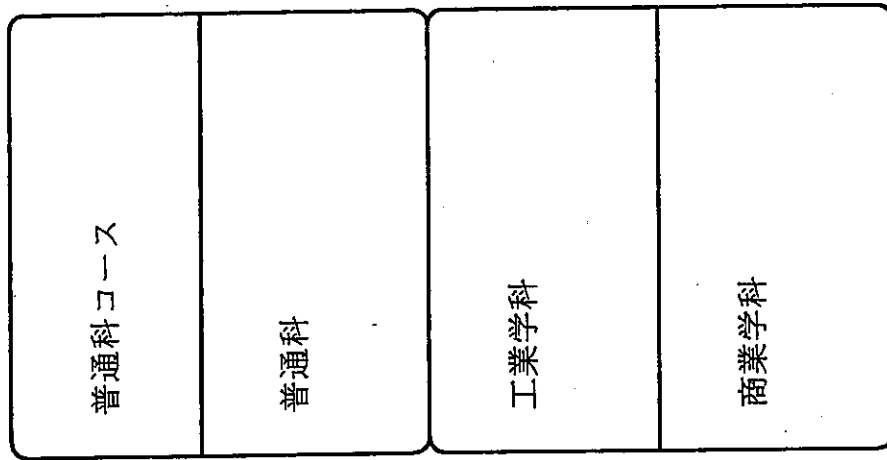 普通科コース
普通科
工業学科
商業学科